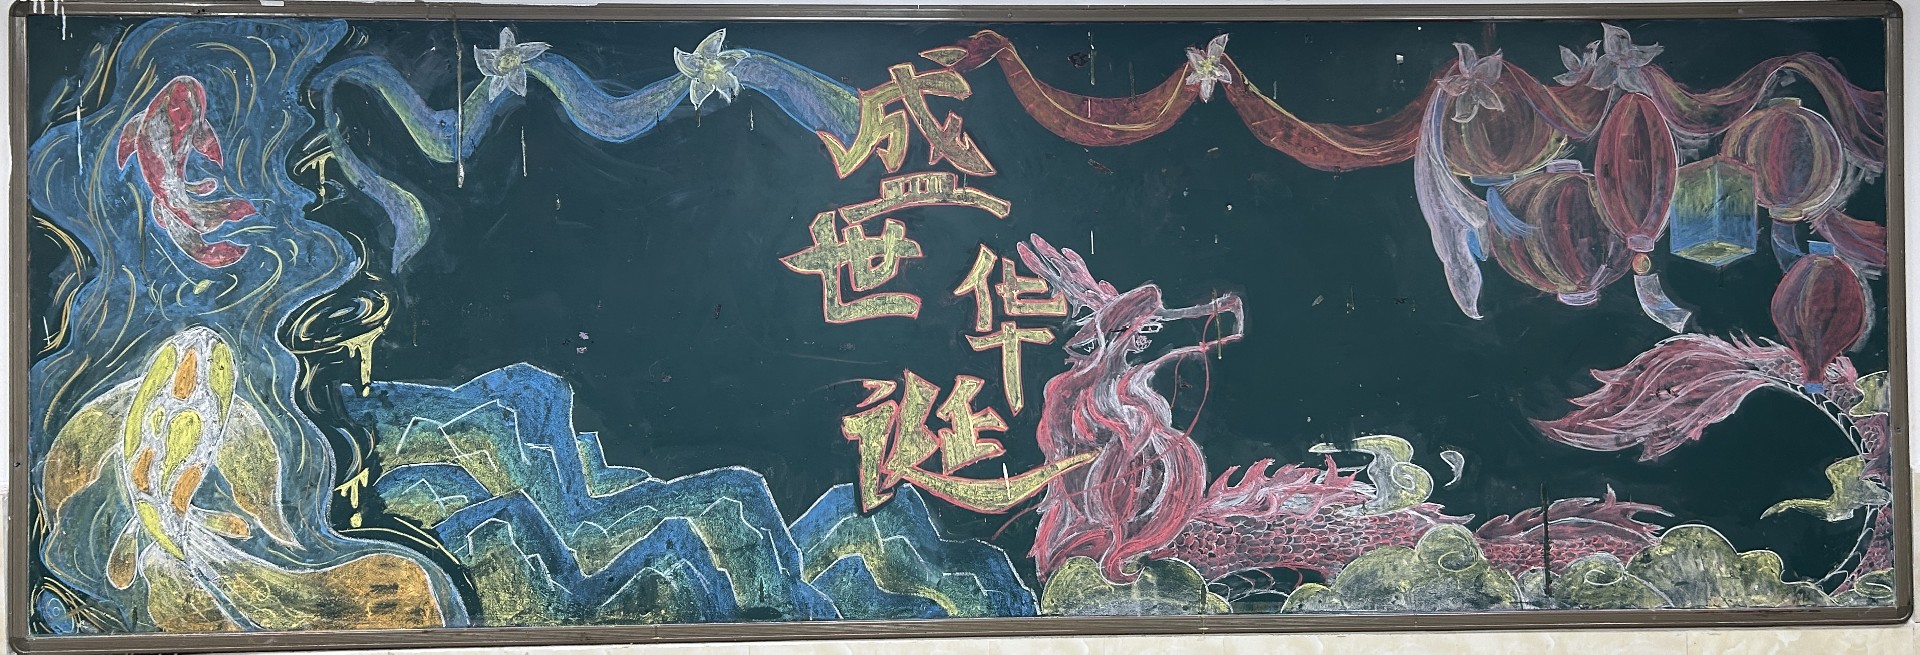 盛世
华诞